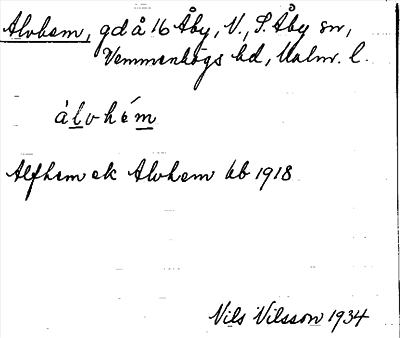 Alvhem, gd å 16 Åby, V., S. Åby sn,
Vemmenhögs hd, Malm. l.
álvhém
Alfhem ek Alvhem kb 1918
Nils Nilsson 1934